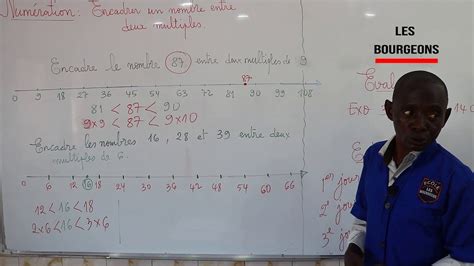 Numération: Encadrer un nombre entre
deux multiples.
Encadre le nombre 87 entre deux multiples de 9
87
0 9 18 27 36 45 54 63 72 81 90 99 108
81 < 87 < 90
9×9 < 87 < 9×10
Encadre les nombres 16, 28 et 39 entre deux
multiples de 6.
0 6 12 16 18 24 30 36 42 48 54 60 66
12 < 16 < 18
2×6 < 16 < 3×6
LES
BOURGEONS
Eval
Exo
14
1er jour
2e jou
3e jou
ECOLE
LES BOURGEONS